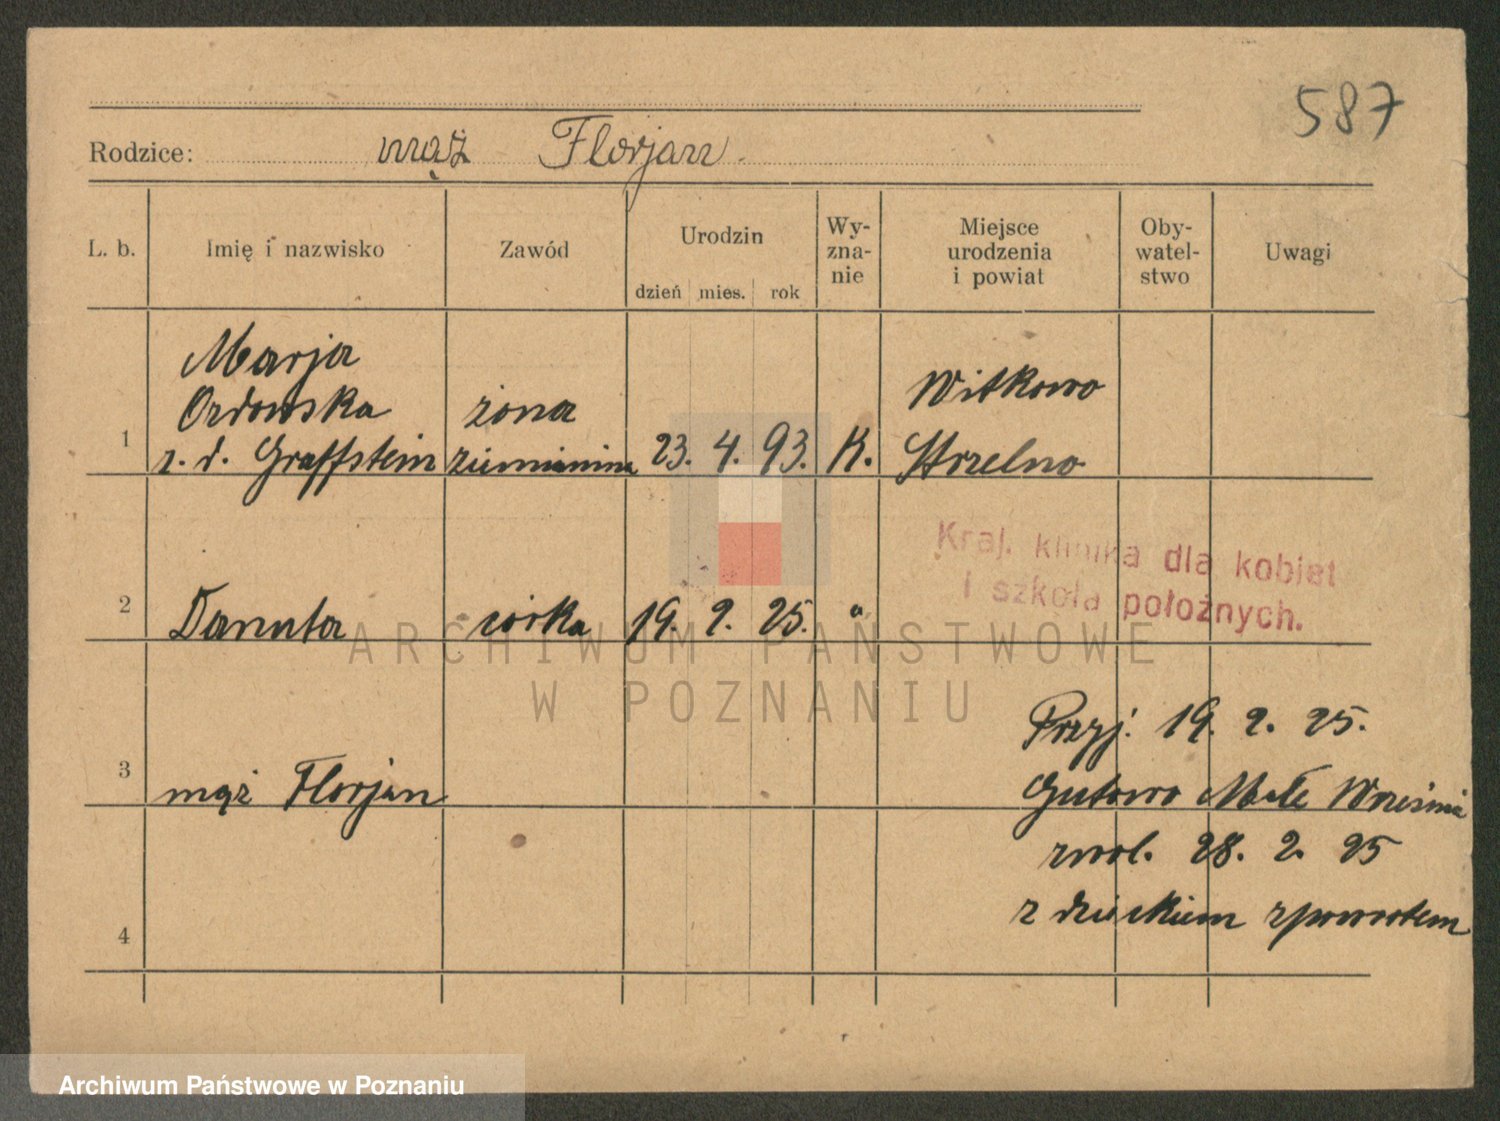 587
Rodzice: mąż Florjan.
L. b. Imię i nazwisko Zawód Urodzin dzień mies. rok Wy- zna- nie Miejsce urodzenia i powiat Oby- watel- stwo Uwagi
Marja
Ordowska żona Witkowo
1 z. d. Graffstein ziemianina 23. 4. 93. K. Strzelno
Kraj. klinika dla kobiet
i szkoła położnych.
2 Danuta córka 19. 2. 25. "
ARCHIWUM PAŃSTWOWE
W POZNANIU
Przyj. 19. 2. 25.
3 mąż Florjan Gutowo Małe Września
zwol. 28. 2. 25
4 z dzieckiem zpowrotem
Archiwum Państwowe w Poznaniu